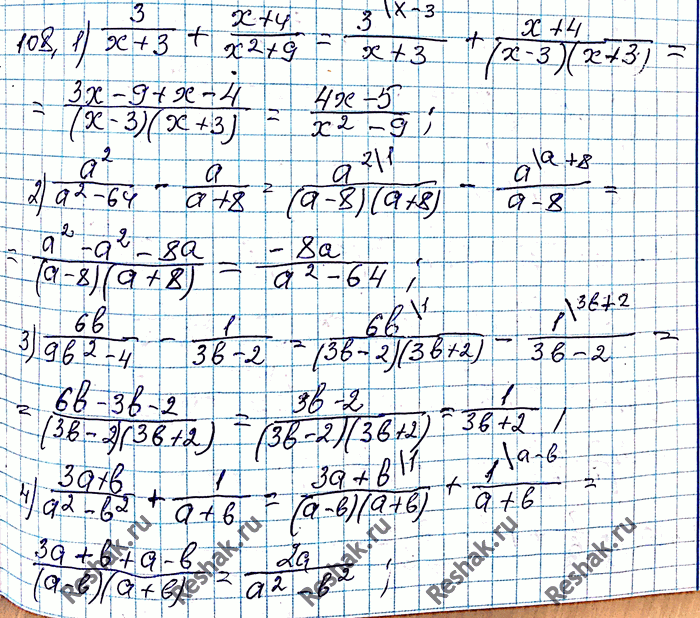 108, 1) 3/(x+3) + (x+4)/(x²+9) = 3\x-3/(x+3) + (x+4)/((x-3)(x+3)) =
= (3x-9+x-4)/((x-3)(x+3)) = (4x-5)/(x²-9) ;
2) a²/(a²-64) - a/(a+8) = a²\1/((a-8)(a+8)) - a\a+8/(a-8) =
= (a²-a²-8a)/((a-8)(a+8)) = -8a/(a²-64) ;
3) 6b/(9b²-4) - 1/(3b-2) = 6b\1/((3b-2)(3b+2)) - 1\3b+2/(3b-2) =
= (6b-3b-2)/((3b-2)(3b+2)) = (3b-2)/((3b-2)(3b+2)) = 1/(3b+2) ,
4) (3a+b)/(a²-b²) + 1/(a+b) = 3a+b\1/((a-b)(a+b)) + 1\a-b/(a+b) =
(3a+b+a-b)/((a-b)(a+b)) = 2a/(a²-b²) ;
Reshak.ru
Reshak.ru
Reshak.ru
Reshak.ru
Reshak.ru